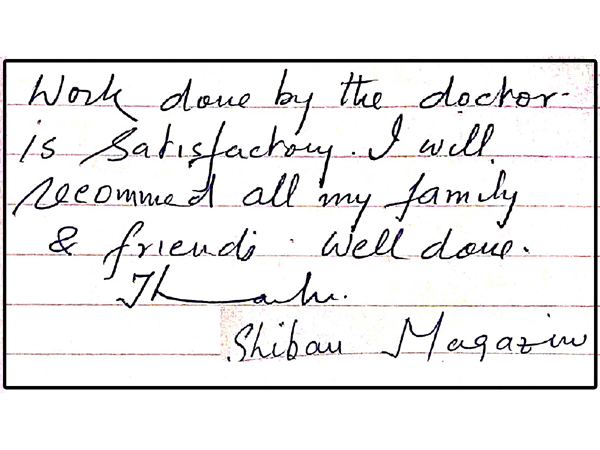 Work done by the doctor-
is Satisfactory. I will
recommed all my family
& friends. Well done.
Shiban Magazin